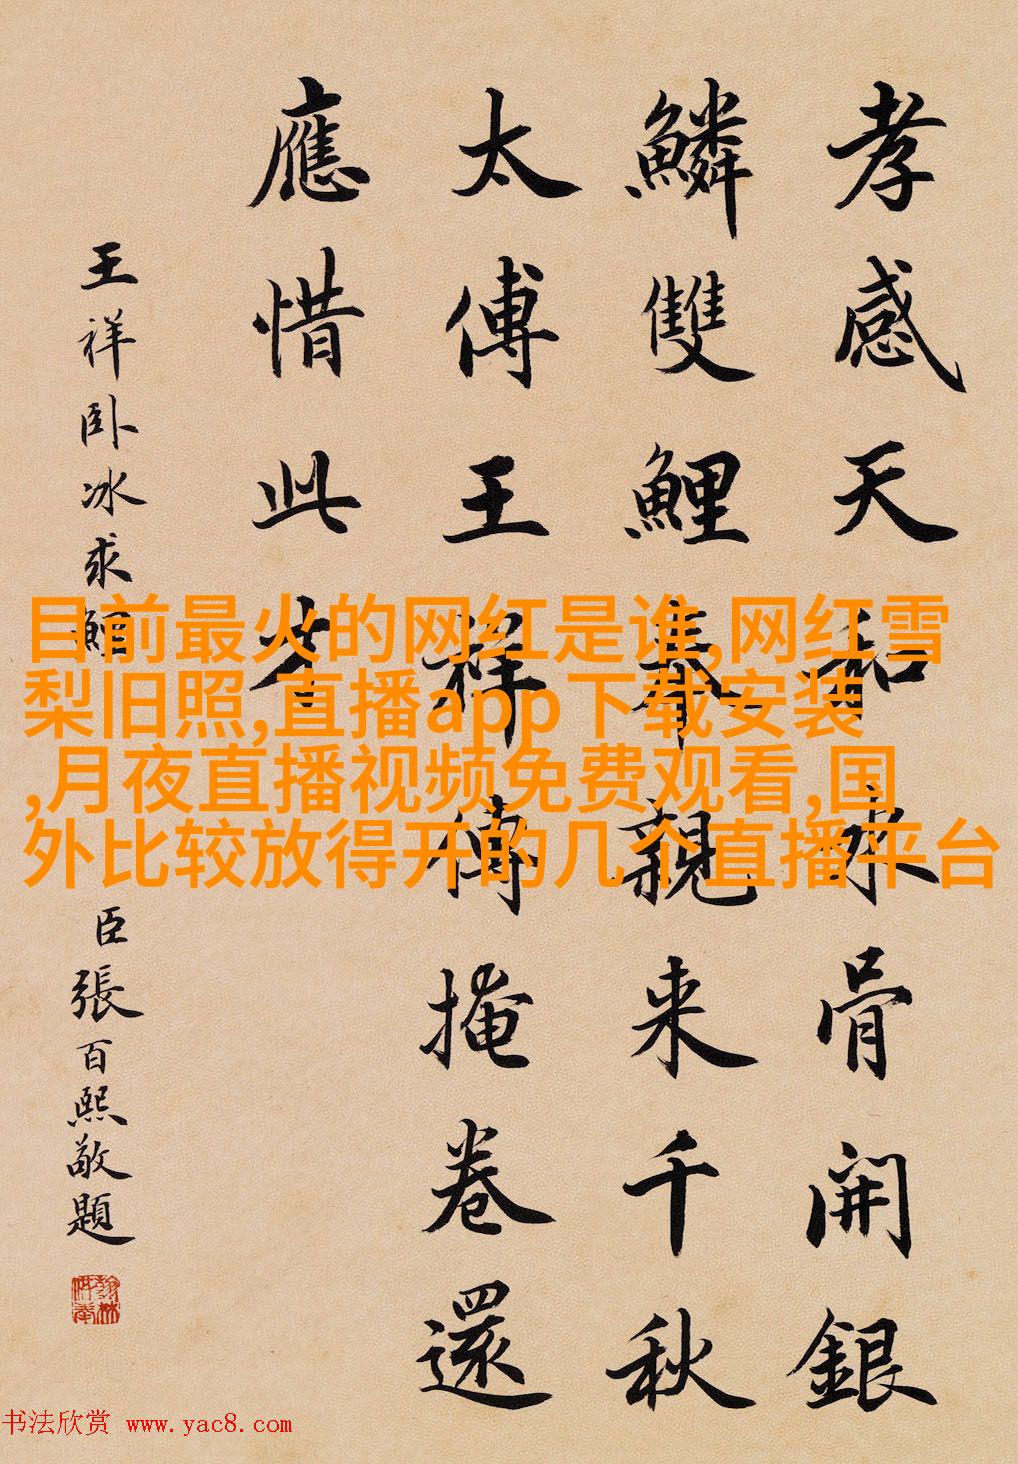 孝感天和冰骨開銀
鱗雙鯉奉親来千秋
太傅王祥傳掩卷還
應惜此才
王祥卧冰求鯉
臣張百熙敬題
目前最火的网红是谁,网红雪
梨旧照,直播app下载安装
,月夜直播视频免费观看,国
外比较放得开的几个直播平台
书法欣赏 www.yac8.com